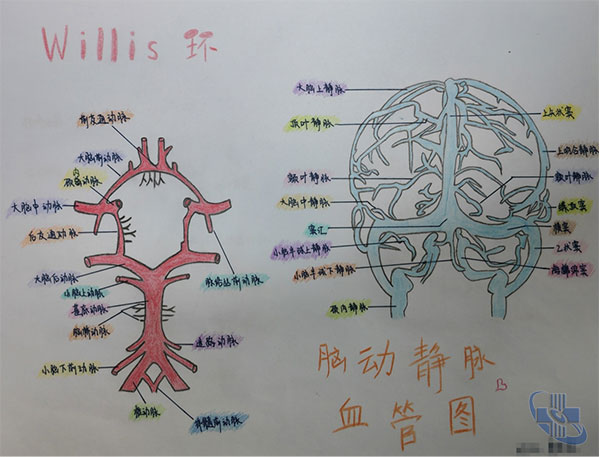 Willis 环
前交通动脉
大脑前动脉
颈内动脉
大脑中动脉
后交通动脉
脉络丛前动脉
大脑后动脉
小脑上动脉
基底动脉
脑桥动脉
迷路动脉
小脑下前动脉
椎动脉
脊髓前动脉
大脑上静脉
顶叶静脉
额叶静脉
大脑中静脉
窦汇
小脑半球上静脉
小脑半球下静脉
颈内静脉
上矢状窦
上吻合静脉
颞叶静脉
横窦
乙状窦
脑动静脉
血管图
B